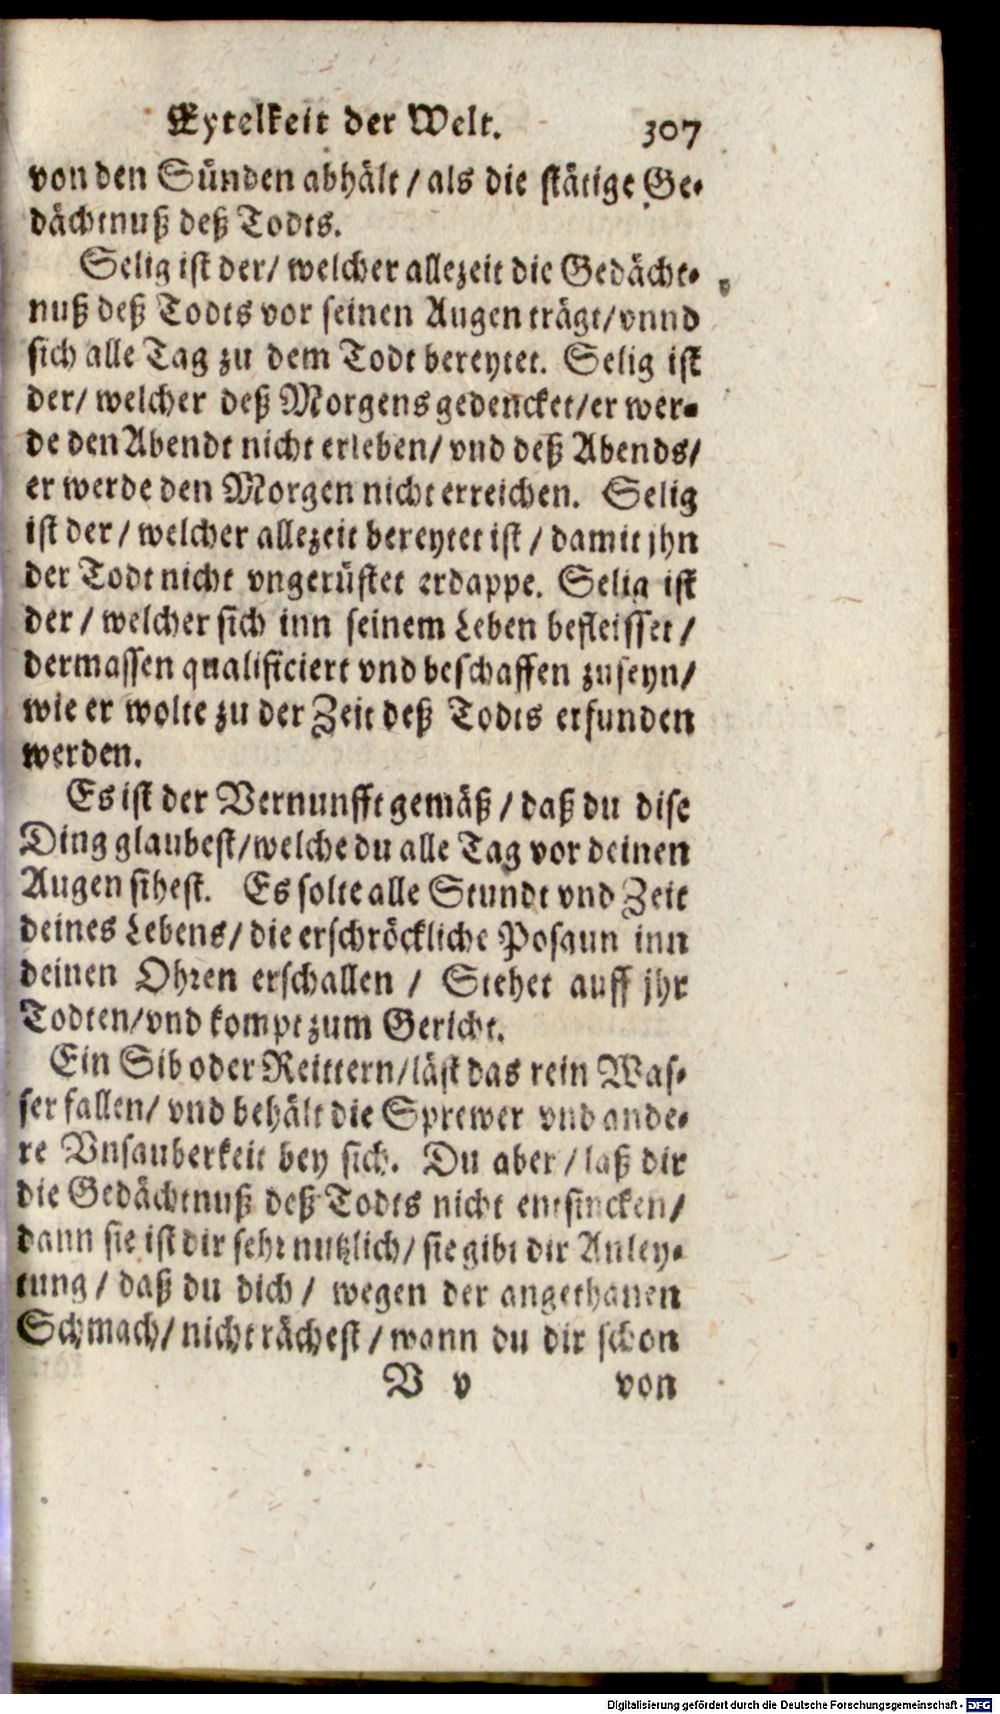 Eytelkeit der Welt. 307
von den Sünden abhält / als die stätige Ge-
dächtnuß deß Todts.
Selig ist der / welcher allezeit die Gedächt-
nuß deß Todts vor seinen Augen trägt / vnnd
sich alle Tag zu dem Todt bereytet. Selig ist
der / welcher deß Morgens gedencket / er wer-
de den Abendt nicht erleben / vnd deß Abends /
er werde den Morgen nicht erreichen. Selig
ist der / welcher allezeit bereytet ist / damit jhn
der Todt nicht vngerüstet erdappe. Selig ist
der / welcher sich inn seinem Leben befleisset /
dermassen qualificiert vnd beschaffen zuseyn /
wie er wolte zu der Zeit deß Todts erfunden
werden.
Es ist der Vernunfft gemäß / daß du dise
Ding glaubest / welche du alle Tag vor deinen
Augen sihest. Es solte alle Stundt vnd Zeit
deines Lebens / die erschröckliche Posaun inn
deinen Ohren erschallen / Stehet auff jhr
Todten / vnd kompt zum Gericht.
Ein Sib oder Reittern / läst das rein Was-
ser fallen / vnd behält die Sprewer vnd ande-
re Vnsauberkeit bey sich. Du aber / laß dir
die Gedächtnuß deß Todts nicht entsincken /
dann sie ist dir sehr nutzlich / sie gibt dir Anley-
tung / daß du dich / wegen der angethanen
Schmach / nicht rächest / wann du dir schon
V v von
Digitalisierung gefördert durch die Deutsche Forschungsgemeinschaft - DFG